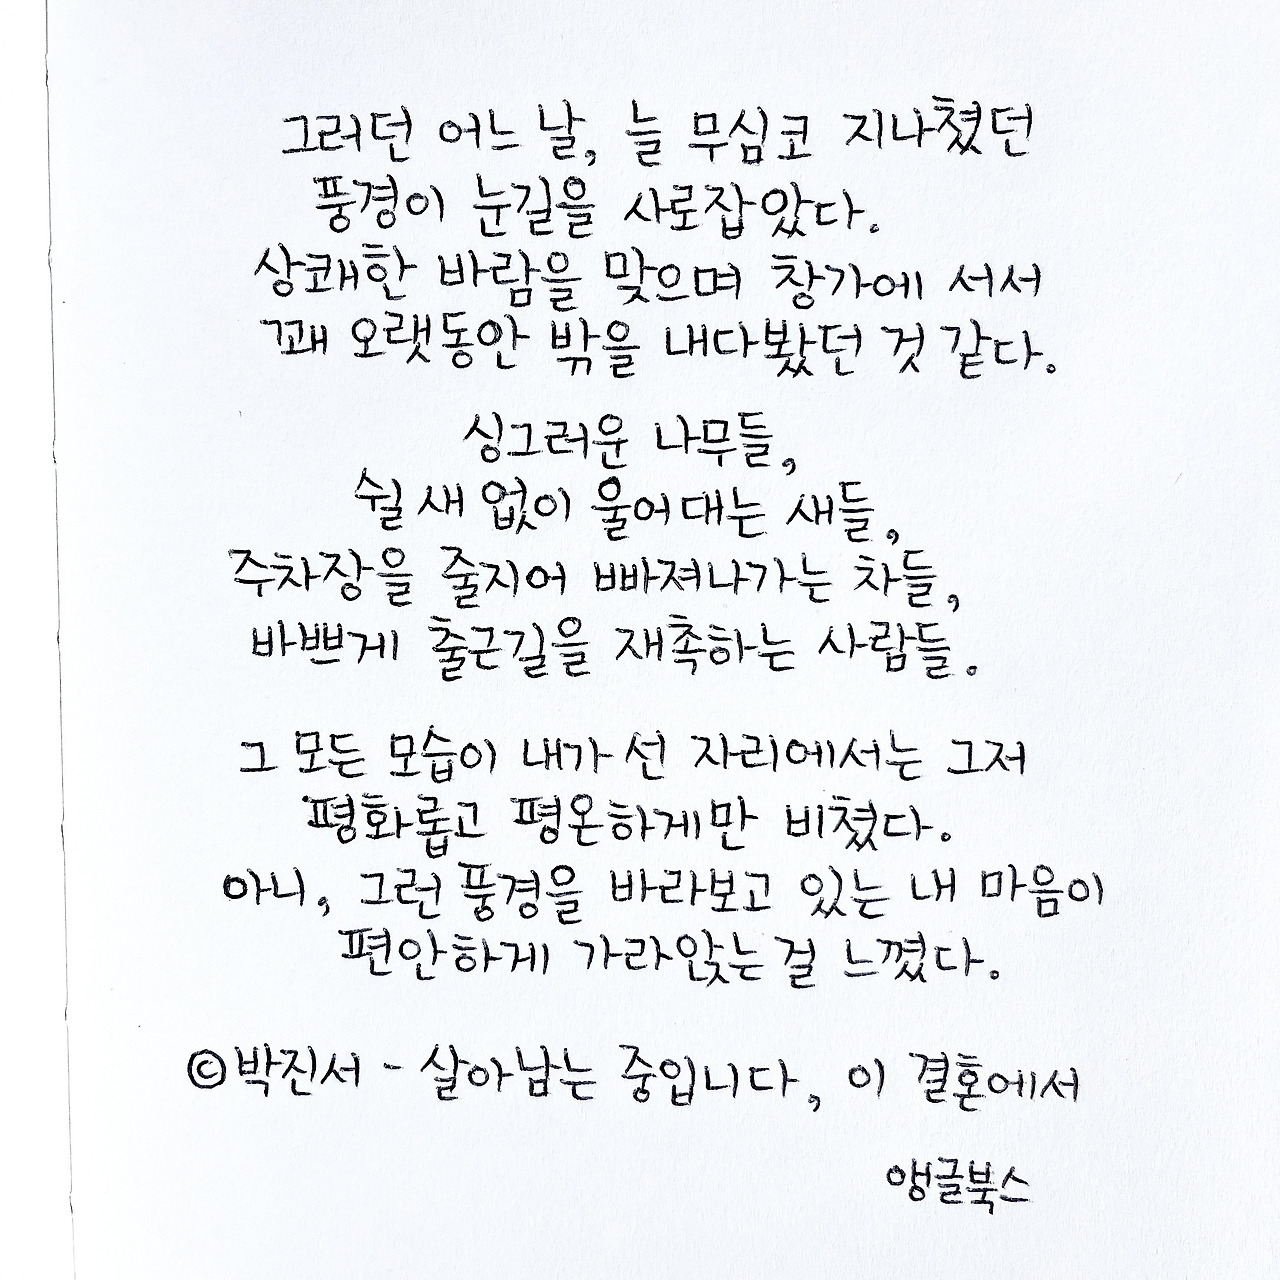 그러던 어느 날, 늘 무심코 지나쳤던
풍경이 눈길을 사로잡았다.
상쾌한 바람을 맞으며 창가에 서서
꽤 오랫동안 밖을 내다봤던 것 같다.
싱그러운 나무들,
쉴 새 없이 울어대는 새들,
주차장을 줄지어 빠져나가는 차들,
바쁘게 출근길을 재촉하는 사람들.
그 모든 모습이 내가 선 자리에서는 그저
평화롭고 평온하게만 비쳤다.
아니, 그런 풍경을 바라보고 있는 내 마음이
편안하게 가라앉는 걸 느꼈다.
©박진서 - 살아남는 중입니다, 이 결혼에서
앵글북스